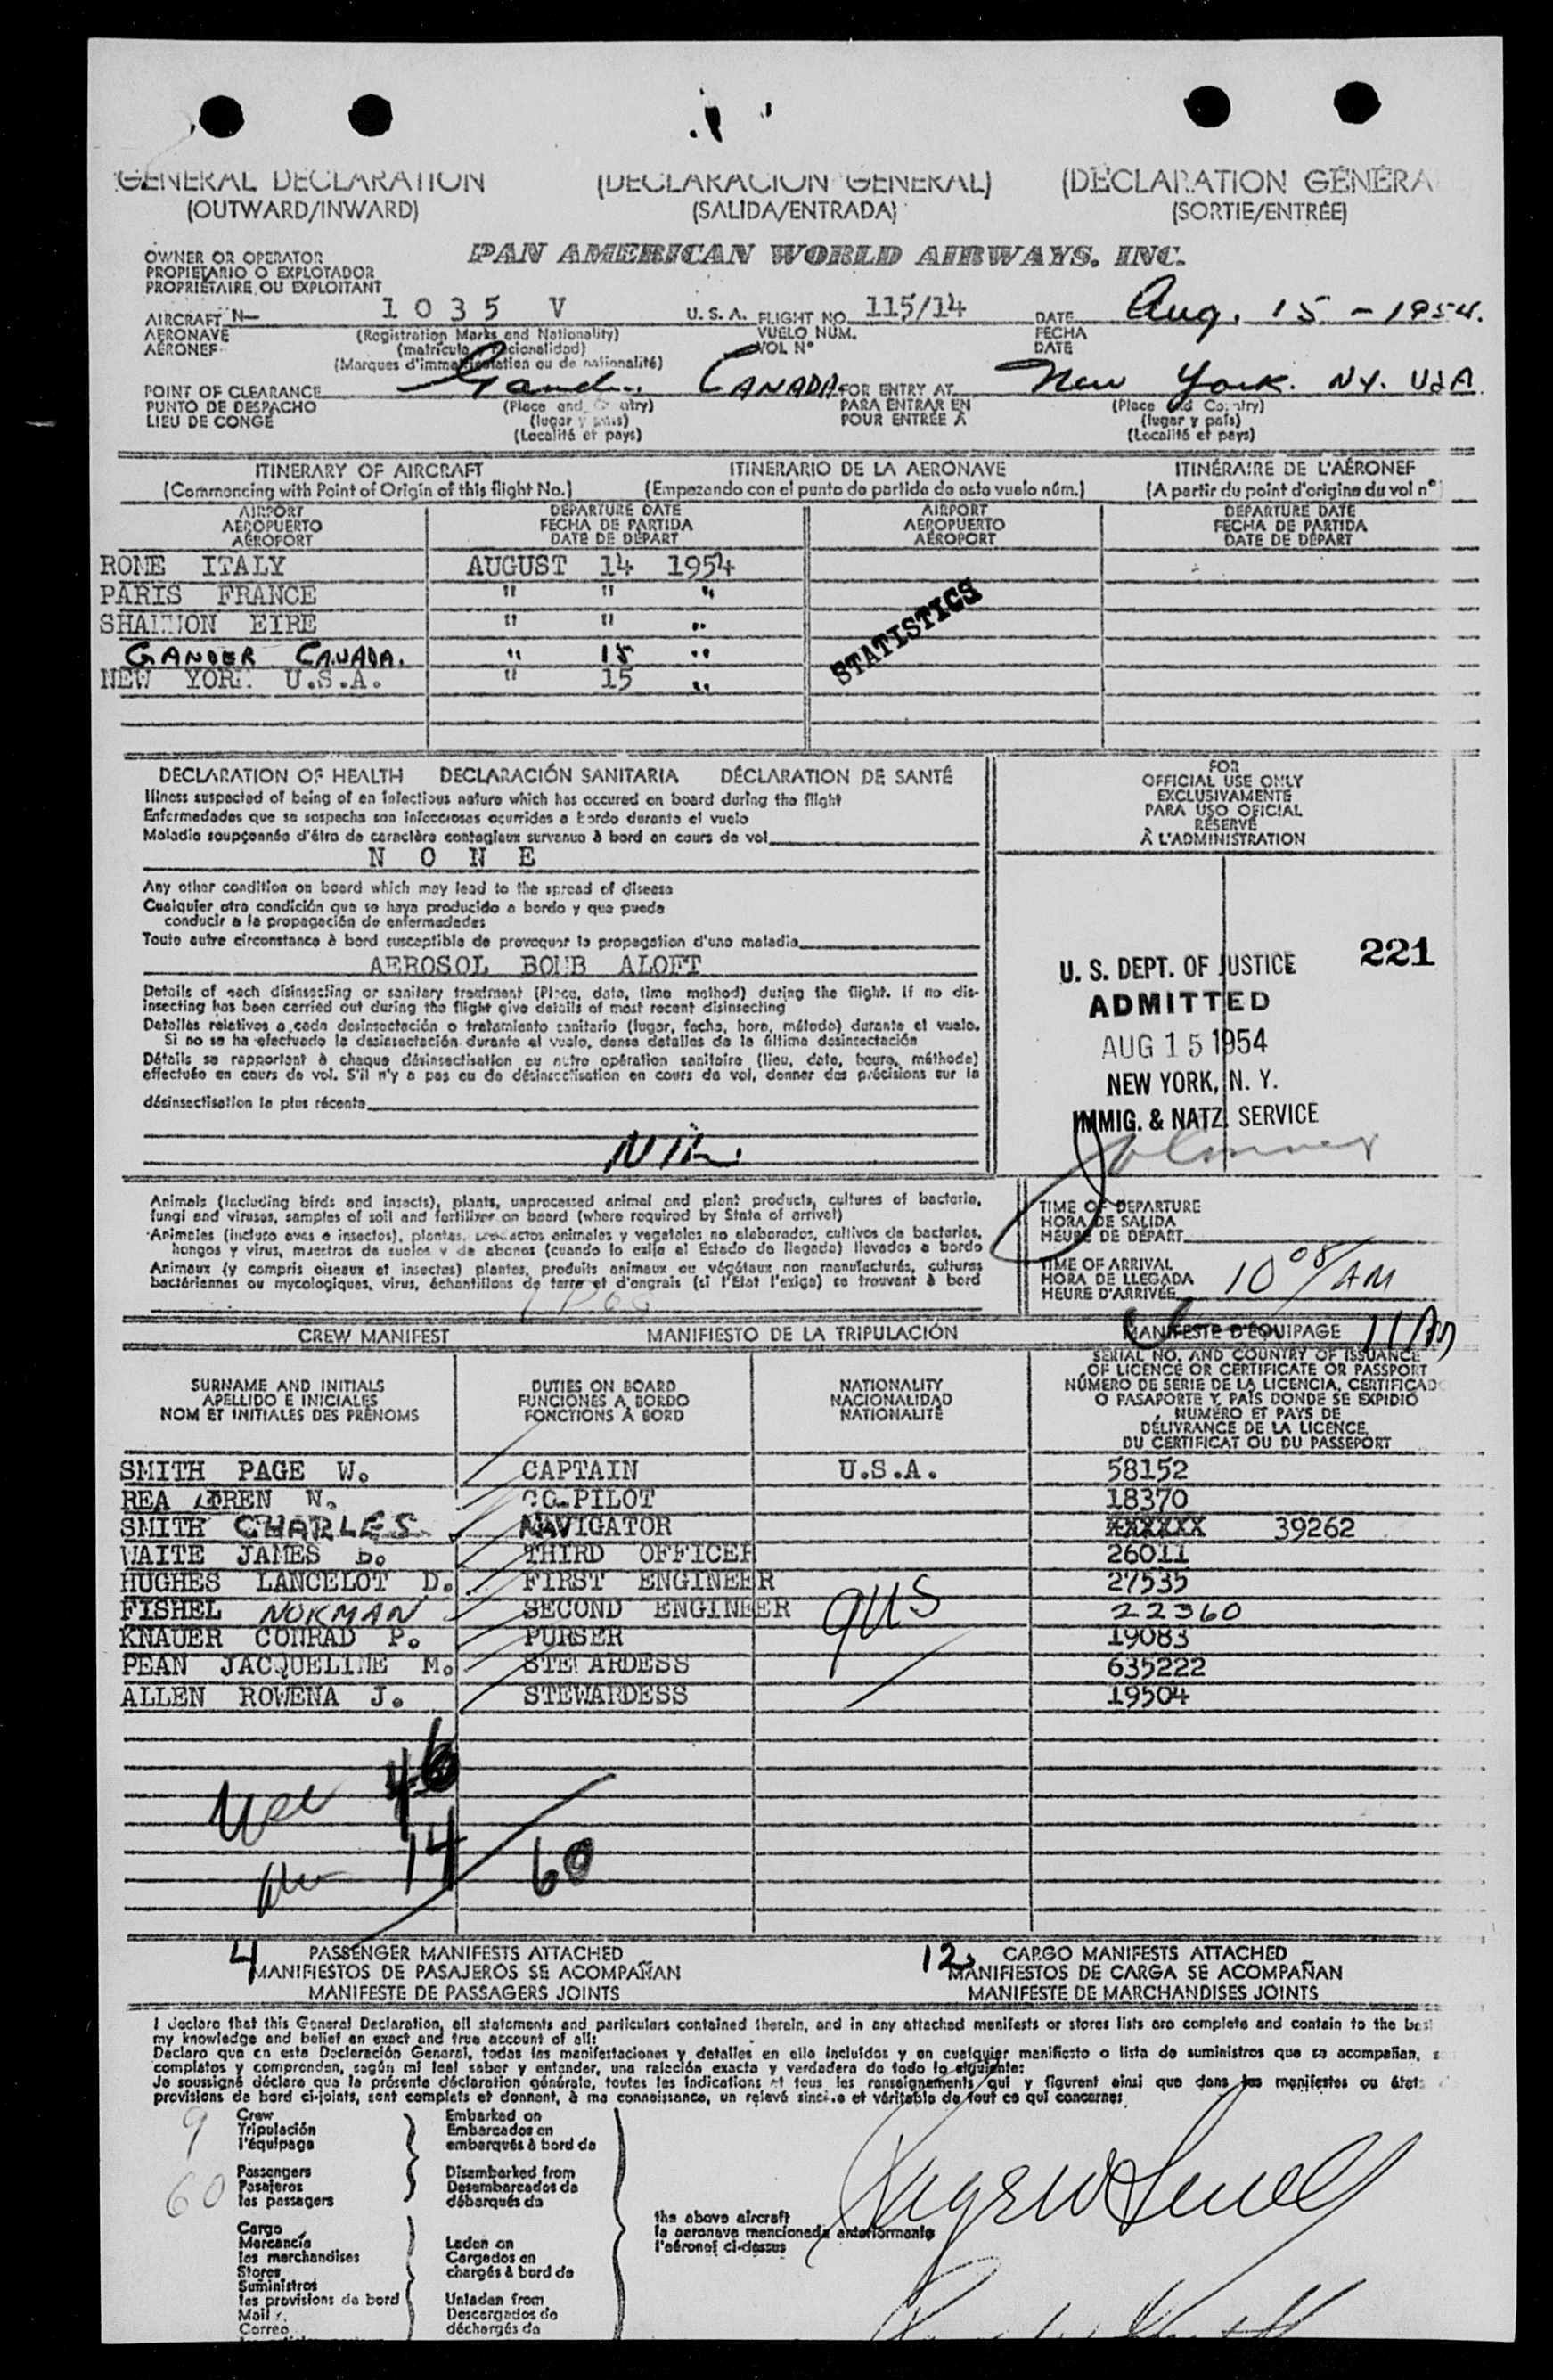 GENERAL DECLARATION (DECLARACION GENERAL) (DÉCLARATION GÉNÉRA
(OUTWARD/INWARD) (SALIDA/ENTRADA) (SORTIE/ENTRÉE)
OWNER OR OPERATOR
PROPIETARIO O EXPLOTADOR
PROPRIÉTAIRE OU EXPLOITANT
PAN AMERICAN WORLD AIRWAYS, INC.
AIRCRAFT N— 1035 V U.S.A. FLIGHT NO. 115/14 DATE Aug. 15 - 1954.
AERONAVE (Registration Marks and Nationality) VUELO NÚM. FECHA
AÉRONEF (matricula y nacionalidad) VOL N° DATE
(Marques d'immatriculation ou de nationalité)
POINT OF CLEARANCE Gander CANADA FOR ENTRY AT New York. NY. USA
PUNTO DE DESPACHO (Place and Country) PARA ENTRAR EN (Place and Country)
LIEU DE CONGÉ (lugar y país) POUR ENTRÉE À (lugar y país)
(Localité et pays) (Localité et pays)
ITINERARY OF AIRCRAFT ITINERARIO DE LA AERONAVE ITINÉRAIRE DE L'AÉRONEF
(Commencing with Point of Origin of this flight No.) (Empezando con el punto de partida de este vuelo núm.) (A partir du point d'origine du vol n°
AIRPORT DEPARTURE DATE AIRPORT DEPARTURE DATE
AEROPUERTO FECHA DE PARTIDA AEROPUERTO FECHA DE PARTIDA
AÉROPORT DATE DE DÉPART AÉROPORT DATE DE DÉPART
ROME ITALY AUGUST 14 1954
PARIS FRANCE " " "
SHANNON EIRE " " "
GANDER CANADA. " 15 "
NEW YORK U.S.A. " 15 "
STATISTICS
DECLARATION OF HEALTH DECLARACIÓN SANITARIA DÉCLARATION DE SANTÉ
Illness suspected of being of an infectious nature which has occured on board during the flight
Enfermedades que se sospecha son infecciosas ocurridas a bordo durante el vuelo
Maladie soupçonnée d'être de caractère contagieux survenue à bord en cours de vol
N O N E
Any other condition on board which may lead to the spread of disease
Cualquier otra condición que se haya producido a bordo y que pueda
conducir a la propagación de enfermedades
Toute autre circonstance à bord susceptible de provoquer la propagation d'une maladie
AEROSOL BOMB ALOFT
Details of each disinsecting or sanitary treatment (Place, date, time method) during the flight. If no dis-
insecting has been carried out during the flight give details of most recent disinsecting
Detalles relativos a cada desinsectación o tratamiento sanitario (lugar, fecha, hora, método) durante el vuelo.
Si no se ha efectuado la desinsectación durante el vuelo, dense detalles de la última desinsectación
Détails se rapportant à chaque désinsectisation ou autre opération sanitaire (lieu, date, heure, méthode)
effectuée en cours de vol. S'il n'y a pas eu de désinsectisation en cours de vol, donner des précisions sur la
désinsectisation la plus récente
NIL
FOR
OFFICIAL USE ONLY
EXCLUSIVAMENTE
PARA USO OFICIAL
RÉSERVÉ
À L'ADMINISTRATION
221
U. S. DEPT. OF JUSTICE
ADMITTED
AUG 15 1954
NEW YORK, N. Y.
IMMIG. & NATZ. SERVICE
Animals (including birds and insects), plants, unprocessed animal and plant products, cultures of bacteria,
fungi and viruses, samples of soil and fertilizer on board (where required by State of arrival)
Animales (incluso aves e insectos), plantas, productos animales y vegetales no elaborados, cultivos de bacterias,
hongos y virus, muestras de suelos y de abonos (cuando lo exija el Estado de llegada) llevados a bordo
Animaux (y compris oiseaux et insectes) plantes, produits animaux ou végétaux non manufacturés, cultures
bactériennes ou mycologiques, virus, échantillons de terre et d'engrais (si l'Etat l'exige) se trouvant à bord
TIME OF DEPARTURE
HORA DE SALIDA
HEURE DE DÉPART
TIME OF ARRIVAL
HORA DE LLEGADA
HEURE D'ARRIVÉE 10 08/AM
CREW MANIFEST MANIFIESTO DE LA TRIPULACIÓN MANIFESTE D'ÉQUIPAGE
SURNAME AND INITIALS
APELLIDO E INICIALES
NOM ET INITIALES DES PRÉNOMS
DUTIES ON BOARD
FUNCIONES A BORDO
FONCTIONS À BORD
NATIONALITY
NACIONALIDAD
NATIONALITÉ
SERIAL NO. AND COUNTRY OF ISSUANCE
OF LICENCE OR CERTIFICATE OR PASSPORT
NÚMERO DE SERIE DE LA LICENCIA, CERTIFICADO
O PASAPORTE Y PAÍS DONDE SE EXPIDIÓ
NUMÉRO ET PAYS DE
DÉLIVRANCE DE LA LICENCE,
DU CERTIFICAT OU DU PASSEPORT
SMITH PAGE W. CAPTAIN U.S.A. 58152
REA LOREN N. CO-PILOT 18370
SMITH CHARLES NAVIGATOR 39262
WAITE JAMES D. THIRD OFFICER 26011
HUGHES LANCELOT D. FIRST ENGINEER 27535
FISHEL NORMAN SECOND ENGINEER 22360
KNAUER CONRAD P. PURSER 19083
PEAN JACQUELINE M. STEWARDESS 635222
ALLEN ROWENA J. STEWARDESS 19504
9US
46
14
60
4 PASSENGER MANIFESTS ATTACHED 12 CARGO MANIFESTS ATTACHED
MANIFIESTOS DE PASAJEROS SE ACOMPAÑAN MANIFIESTOS DE CARGA SE ACOMPAÑAN
MANIFESTE DE PASSAGERS JOINTS MANIFESTE DE MARCHANDISES JOINTS
I declare that this General Declaration, all statements and particulars contained therein, and in any attached manifests or stores lists are complete and contain to the best
my knowledge and belief an exact and true account of all:
Declaro que en esta Declaración General, todas las manifestaciones y detalles en ella incluídos y en cualquier manifiesto o lista de suministros que se acompañan,
completos y comprenden, según mi leal saber y entender, una relación exacta y verdadera de todo lo siguiente:
Je soussigné déclare que la présente déclaration générale, toutes les indications et tous les renseignements qui y figurent ainsi que dans les manifestes ou états
provisions de bord ci-joints, sont complets et donnent, à ma connaissance, un relevé sincère et véritable de tout ce qui concerne:
9 Crew Embarked on
Tripulación Embarcados en
l'équipage embarqués à bord de
Passengers Disembarked from
60 Pasajeros Desembarcados de
les passagers débarqués de
the above aircraft
la aeronave mencionada anteriormente
l'aéronef ci-dessus
Cargo
Mercancía Laden on
les marchandises Cargados en
Stores chargés à bord de
Suministros
les provisions de bord Unladen from
Mail Descargados de
Correo déchargés de